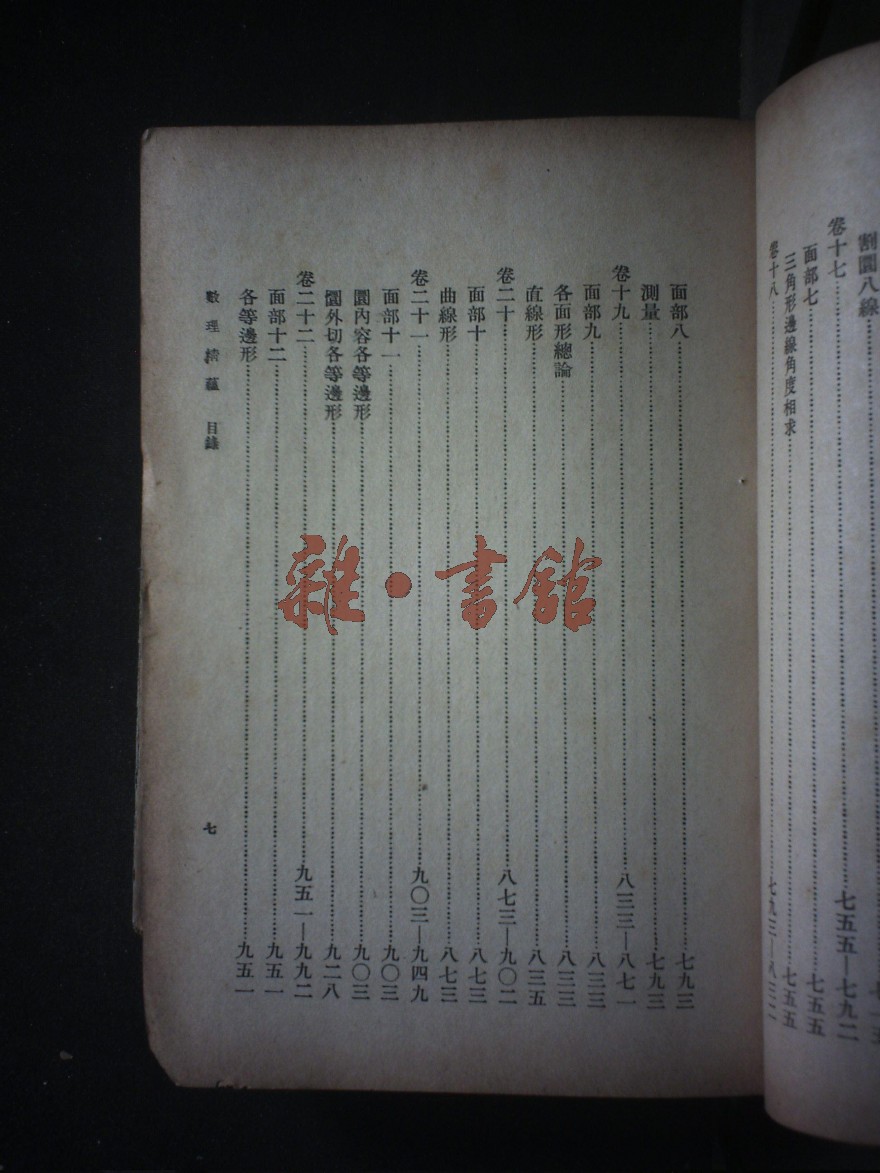 割圜八線
卷十七……七五五—七九二
面部七……七五五
三角形邊線角度相求……七五五
卷十八……七九三—八三二
面部八……七九三
測量……七九三
卷十九……八三三—八七一
面部九……八三三
各面形總論……八三三
直線形……八三五
卷二十……八七三—九〇二
面部十……八七三
曲線形……八七三
卷二十一……九〇三—九四九
面部十一……九〇三
圜內容各等邊形……九〇三
圜外切各等邊形……九二八
卷二十二……九五一—九九二
面部十二……九五一
各等邊形……九五一
數理精蘊 目錄
七
雜·書館